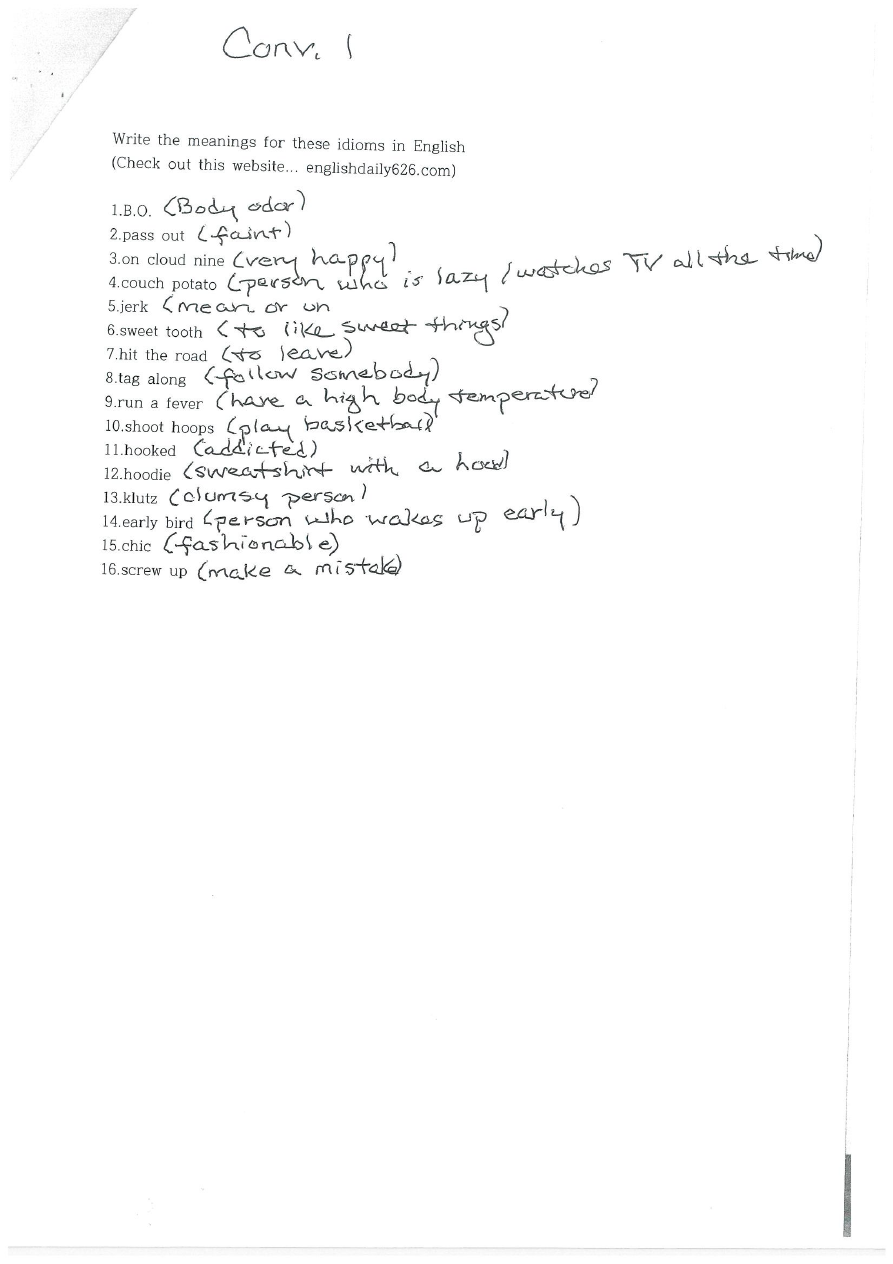 Conv. 1
Write the meanings for these idioms in English
(Check out this website... englishdaily626.com)
1.B.O. (Body odor)
2.pass out (faint)
3.on cloud nine (very happy)
4.couch potato (person who is lazy / watches TV all the time)
5.jerk (mean or un
6.sweet tooth (to like sweet things)
7.hit the road (to leave)
8.tag along (follow somebody)
9.run a fever (have a high body temperature)
10.shoot hoops (play basketball)
11.hooked (addicted)
12.hoodie (sweatshirt with a hood)
13.klutz (clumsy person)
14.early bird (person who wakes up early)
15.chic (fashionable)
16.screw up (make a mistake)